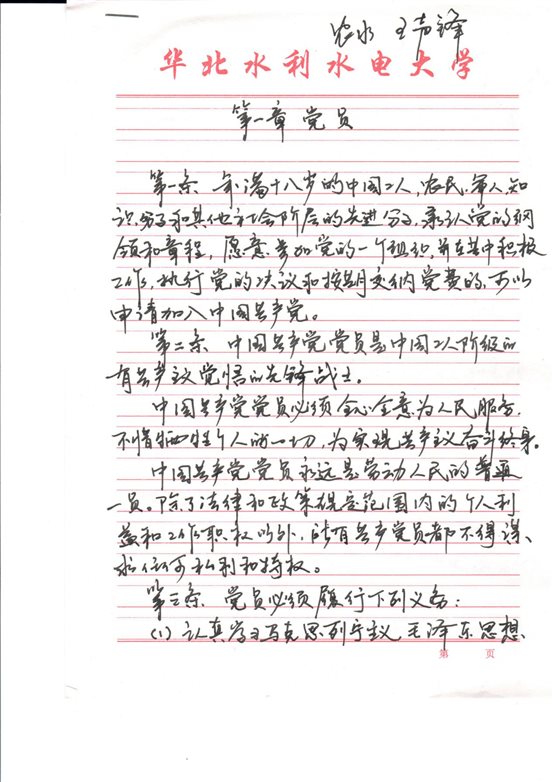 农水 王
华北水利水电大学
第一章 党员
第一条 年满十八岁的中国工人,农民,军人,知
识分子和其他社会阶层的先进分子,承认党的纲
领和章程,愿意参加党的一个组织并在其中积极
工作,执行党的决议和按期交纳党费的,可以
申请加入中国共产党。
第二条 中国共产党党员是中国工人阶级的
有共产主义觉悟的先锋战士。
中国共产党党员必须全心全意为人民服务,
不惜牺牲个人的一切,为实现共产主义奋斗终身。
中国共产党党员永远是劳动人民的普通
一员。除了法律和政策规定范围内的个人利
益和工作职权以外,所有共产党员都不得谋
求任何私利和特权。
第三条 党员必须履行下列义务:
(1)认真学习马克思列宁主义 毛泽东思想、
第 页